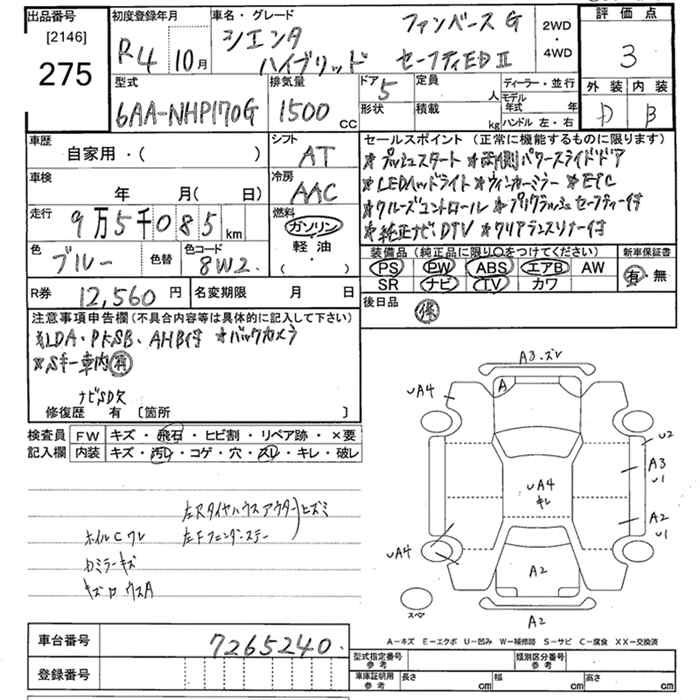 出品番号 [2146] 275
初度登録年月 R4 10月
車名・グレード シエンタ ハイブリッド ファンベースG セーフティEDⅡ
2WD・4WD
評価点 3
外装 D 内装 B
型式 6AA-NHP170G
排気量 1500 CC
ドア 5 形状
定員 人 積載 kg
ディーラー・並行
モデル年式 年
ハンドル 左・右
車歴 自家用・( )
シフト AT
車検 年 月( 日)
冷房 AAC
走行 9万5千085 km
燃料 ガソリン 軽油・( ・ )
色 ブルー 色替 色コード 8W2.
セールスポイント (正常に機能するものに限ります)
*プッシュスタート *両側パワースライドドア
*LEDヘッドライト *ウィンカーミラー *ETC
*クルーズコントロール *プリクラッシュセーフティー付
*純正ナビ、DTV *クリアランスソナー付
装備品 (純正品に限り○をつけてください)
PS PW ABS エアB AW
SR ナビ TV カワ
新車保証書 有・無
R券 12,560円 名変期限 月 日
後日品 保
注意事項申告欄 (不具合内容等は具体的に記入して下さい)
*LDA・PKSB、AHB付 *バックカメラ
*Sキー車内有
ナビSD欠
修復歴 有 〔箇所 〕
検査員記入欄 FW キズ・飛石・ヒビ割・リペア跡・×要
内装 キズ・汚レ・コゲ・穴・スレ・キレ・破レ
左Rタイヤハウスアウター
左Fフェンダーステー
ヒズミ
ホイルCワレ
ミラーキズ
A3.ズレ
A
UA4
U2
A3
U1
UA4
キレ
A2
U1
UA4
A2
A2
スペア
A-キズ E-エクボ U-凹み W-補修跡 S-サビ C-腐食 XX-交換済
車台番号 7265240.
登録番号
型式指定番号 参考 類別区分番号 参考
車庫証明用 参考 長さ cm 幅 cm 高さ cm